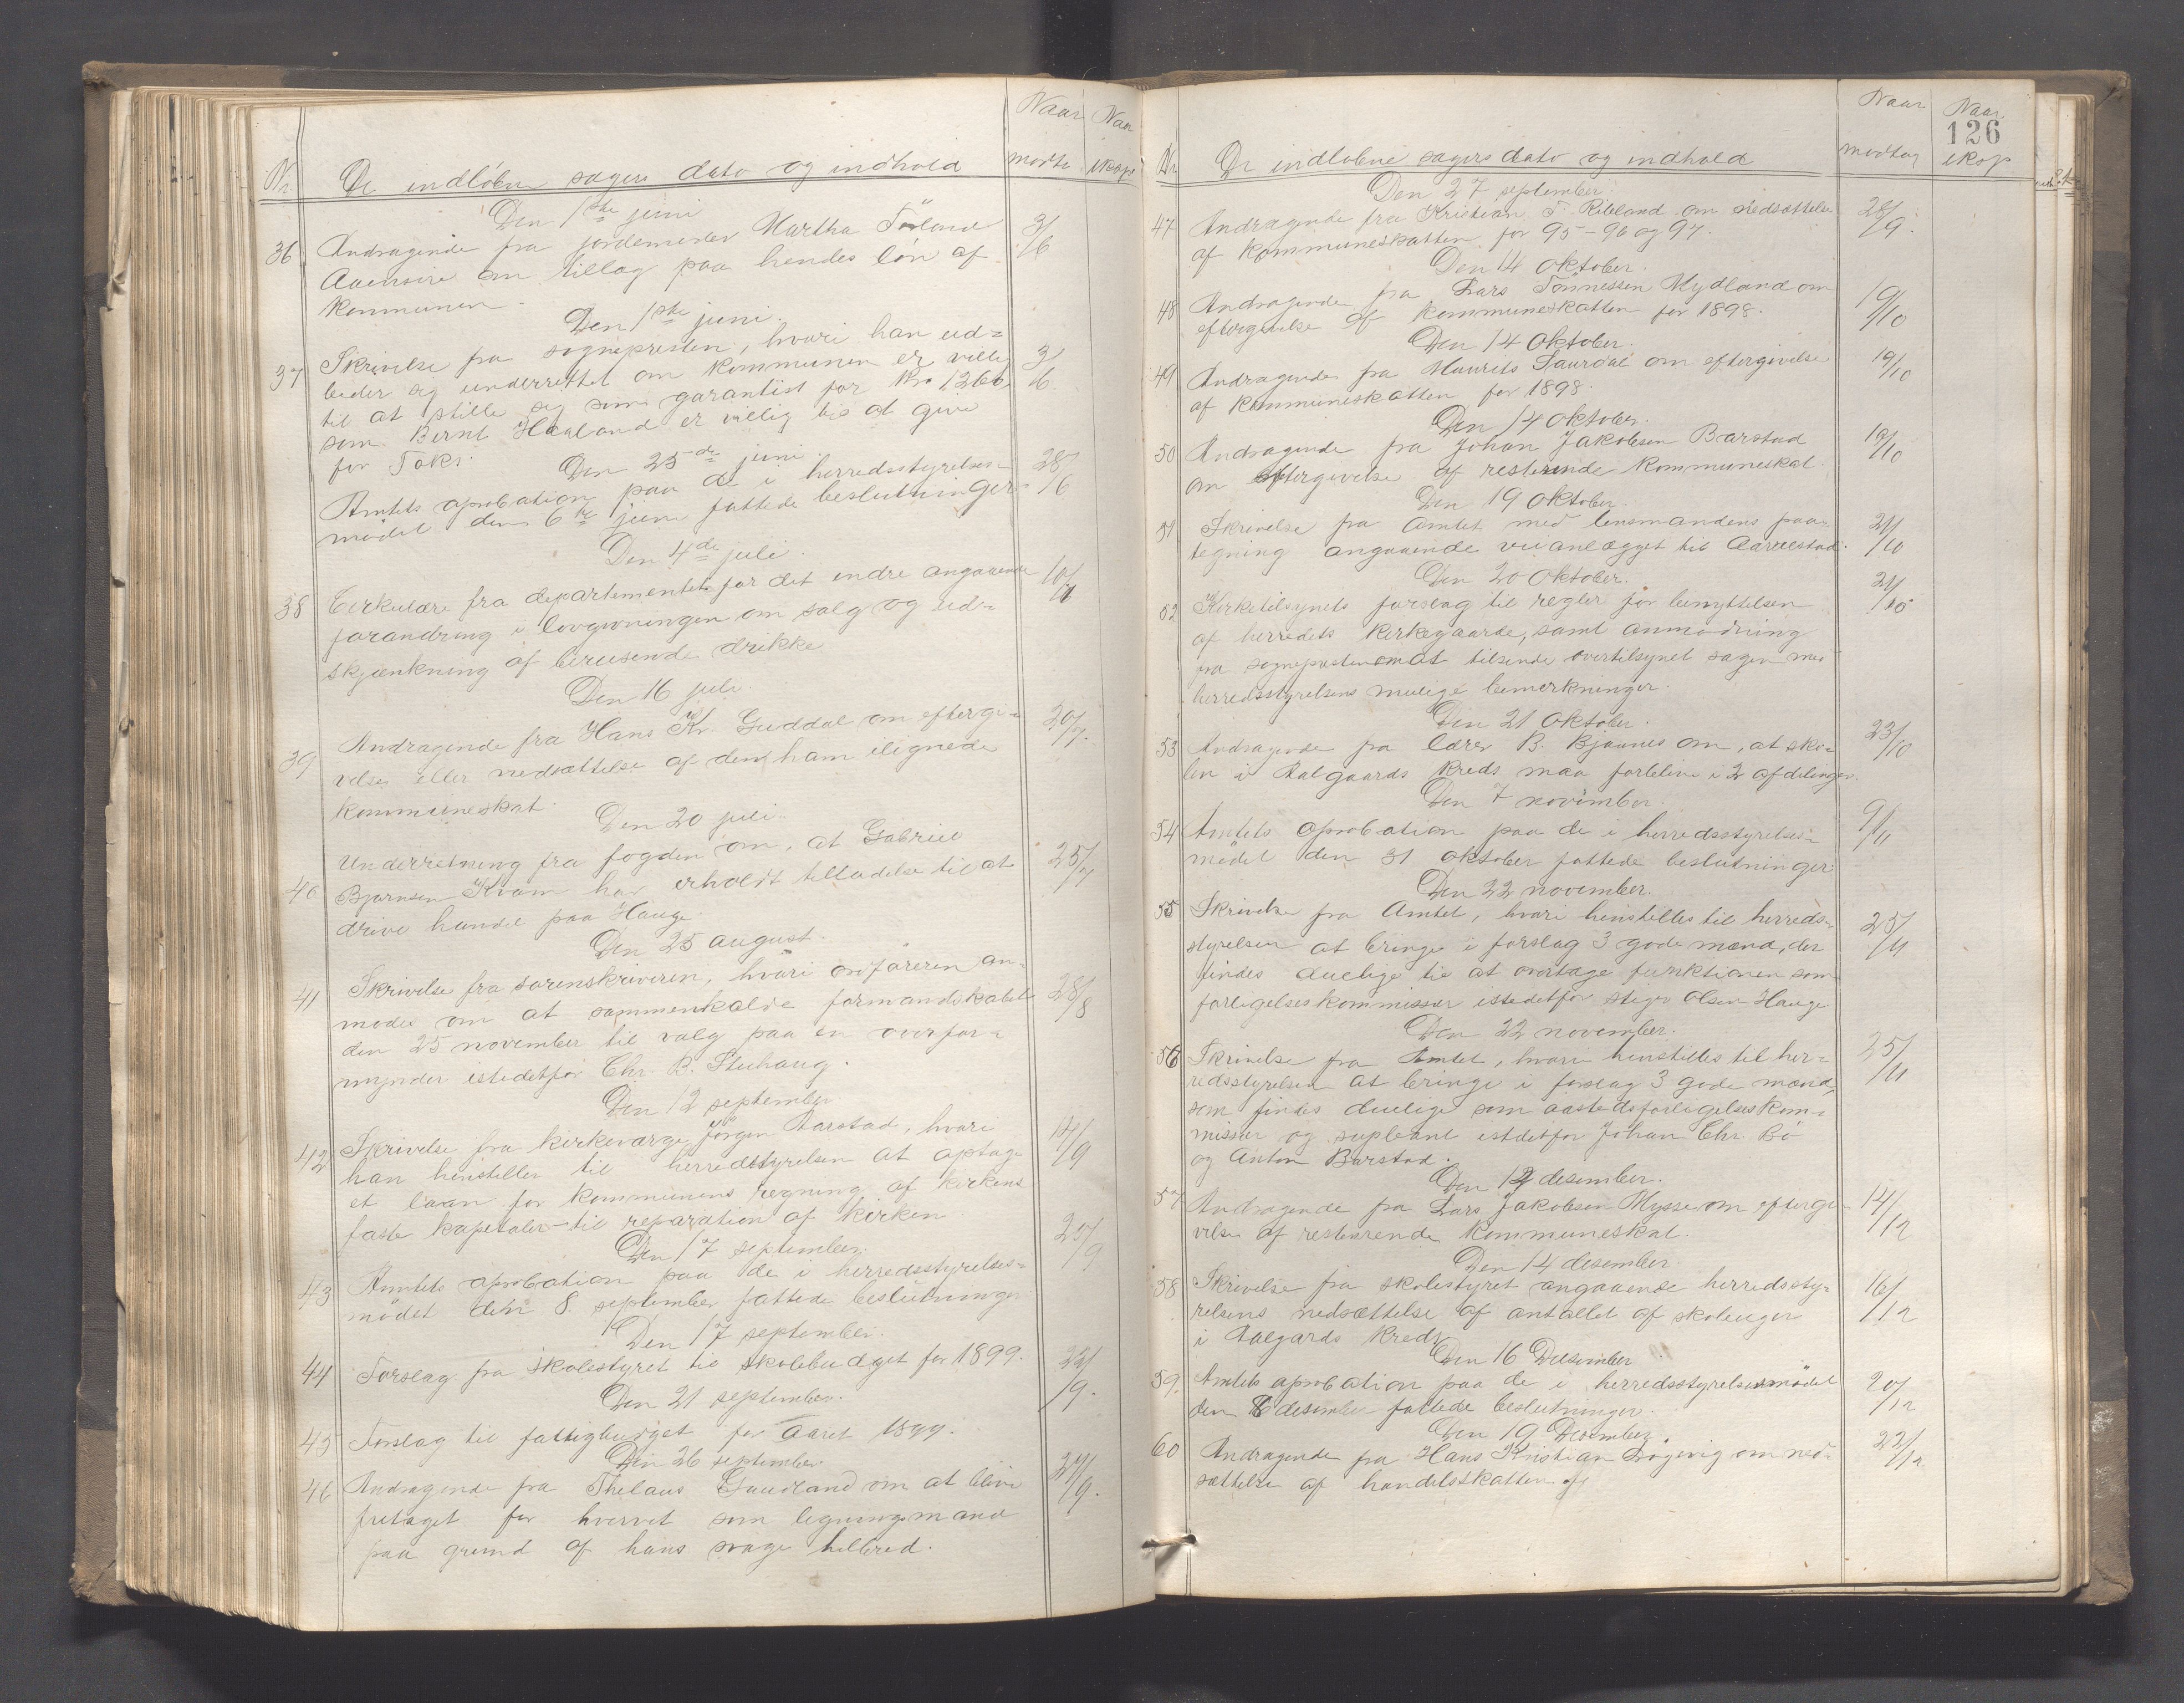 Naar Naar
Nr. De indløbne sagers dato og indhold modta ekspe
Den 1ste juni
36 Andragende fra jordemoder Martha Töland 3/6
Aaensire om tillæg paa hendes løn af
kommunen.
Den 1ste juni.
37 Skrivelse fra sognepresten, hvori han ud= 3/6.
beder sig underrettet om kommunen er villig
til at stille sig som garantist for Kr. 1260
som Bernt Haaland er villig til at give
for Toks.
Den 25de juni
Amtets aprobation paa de i herredsstyrelses= 28/6
mødet den 6te juni fattede beslutninger.
Den 4de juli.
38 Cirkulære fra departementet for det indre angaaende 10/7
forandring i lovgivningen om salg og ud=
skjænkning af berusende drikke
Den 16 juli.
39 Andragende fra Hans Kr. Guddal om eftergi= 20/7.
velse eller nedsættelse af den ham ilignede
kommuneskat.
Den 20 juli.
40 Underretning fra fogden om, at Gabriel 25/7
Bjørnsen Kvam har erholdt tilladelse til at
drive handel paa Hauge.
Den 25 august.
41 Skrivelse fra sorenskriveren, hvori ordføreren an= 28/8
modes om at sammenkalde formandskabet
den 25 november til valg paa en overfor=
mynder istedetfor Chr. B. Stuhaug.
Den 12 september.
42 Skrivelse fra kirkeværge Jörgen Barstad, hvori 14/9
han henstiller til herredsstyrelsen at optage
et laan for kommunens regning af kirkens
faste kapitaler til reparation af kirken
Den 17 september.
43 Amtets aprobation paa de i herredsstyrelses= 20/9
mødet den 8. september fattede beslutninger
Den 17 september.
44 Forslag fra skolestyret til skolebudget for 1899. 22/9.
Den 21 september.
45 Forslag til fattigbudget for aaret 1899.
Den 26 september
46 Andragende fra Thelaus Saurland om at blive 27/9.
fritaget for hvervet som ligningsmand
paa grund af hans svage helbred.
Naar Naar
126
Nr. De indløbne sagers dato og indhold modtag eksp
Den 27 september.
47 Andragende fra Kristian T. Ribland om nedsættelse 28/9.
af kommuneskatten for 95-96 og 97.
Den 14 oktober.
48 Andragende fra Lars Tönnessen Mydland om 19/10
eftergivelse af kommuneskatten for 1898.
Den 14 oktober.
49 Andragende fra Maurits Saurdal om eftergivelse 19/10
af kommuneskatten for 1898.
Den 14 oktober.
50 Andragende fra Johan Jakobsen Barstad 19/10
om eftergivelse af resterende kommuneskat.
Den 19 oktober.
51 Skrivelse fra Amtet med lensmandens paa= 21/10
tegning angaaende veianlægget til Aarrestad.
Den 20 oktober.
52 Kirketilsynets forslag til regler for benyttelsen 21/10
af herredets kirkegaarde, samt anmodning
fra sognepresten om at tilsende overtilsynet sagen med
herredsstyrelsens mulige bemerkninger.
Den 21 oktober.
53 Andragende fra lærer B. Bjaunes om, at sko= 23/10
len i Aalgaards kreds maa forblive i 2 afdelinger.
Den 7 november.
54 Amtets aprobation paa de i herredsstyrelses= 9/11
mødet den 31 oktober fattede beslutninger
Den 22 november.
55 Skrivelse fra Amtet, hvori henstilles til herreds= 25/11
styrelsen at bringe i forslag 3 gode mænd, der
findes duelige til at overtage funktionen som
forligelseskommissær istedetfor Steger Olsen Hauge
Den 22 november.
56 Skrivelse fra Amtet, hvori henstilles til her= 25/11
redsstyrelsen at bringe i forslag 3 gode mænd,
som findes duelige som aastedsforligelseskom=
missær og supleant istdetfor Johan Chr. Bö
og Anton Barstad.
Den 12 desember.
57 Andragende fra Lars Jakobsen Mysse om eftergi= 14/12
velse af resterende kommuneskat.
Den 14 desember.
58 Skrivelse fra skolestyret angaaende herredssty= 16/12
relsens nedsættelse af antallet af skoleuger
i Aalgards kreds
Den 16 Desember
59. Amtets aprobation paa de i herredsstyrelsesmødet 20/12
den 8 desember fattede beslutninger.
Den 19 Desember.
60 Andragende fra Hans Kristian Sögevig om ned= 22/12
sættelse af handelsskatten af